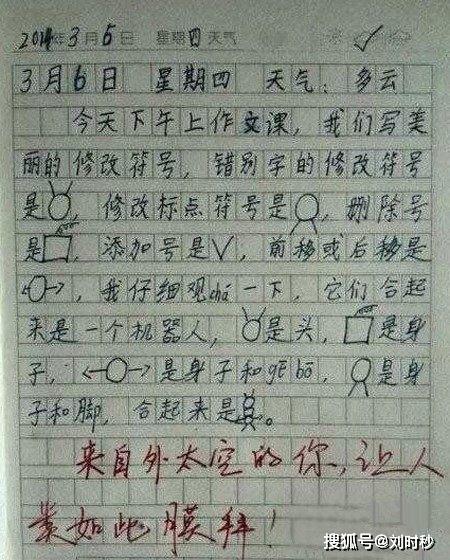 2014年3月6日 星期四天气
3月6日 星期四 天气：多云
今天下午上作文课，我们写美
丽的修改符号，错别字的修改符号
是 ，修改标点符号是 ，删除号
是 ，添加号是∨，前移或后移是
←○→，我仔细观chá一下，它们合起
来是一个机器人， 是头， 是身
子，←○→是身子和gē bō， 是身
子和脚，合起来是 。
来自外太空的你，让人
类如此膜拜！
搜狐号@刘时秒